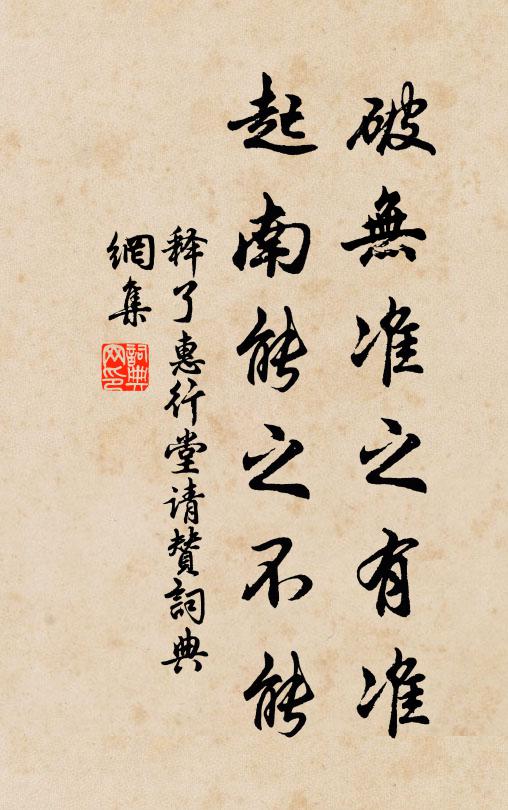 破無准之有准
起南能之不能
释了惠行堂请赞詞典
網集
詞典
网印